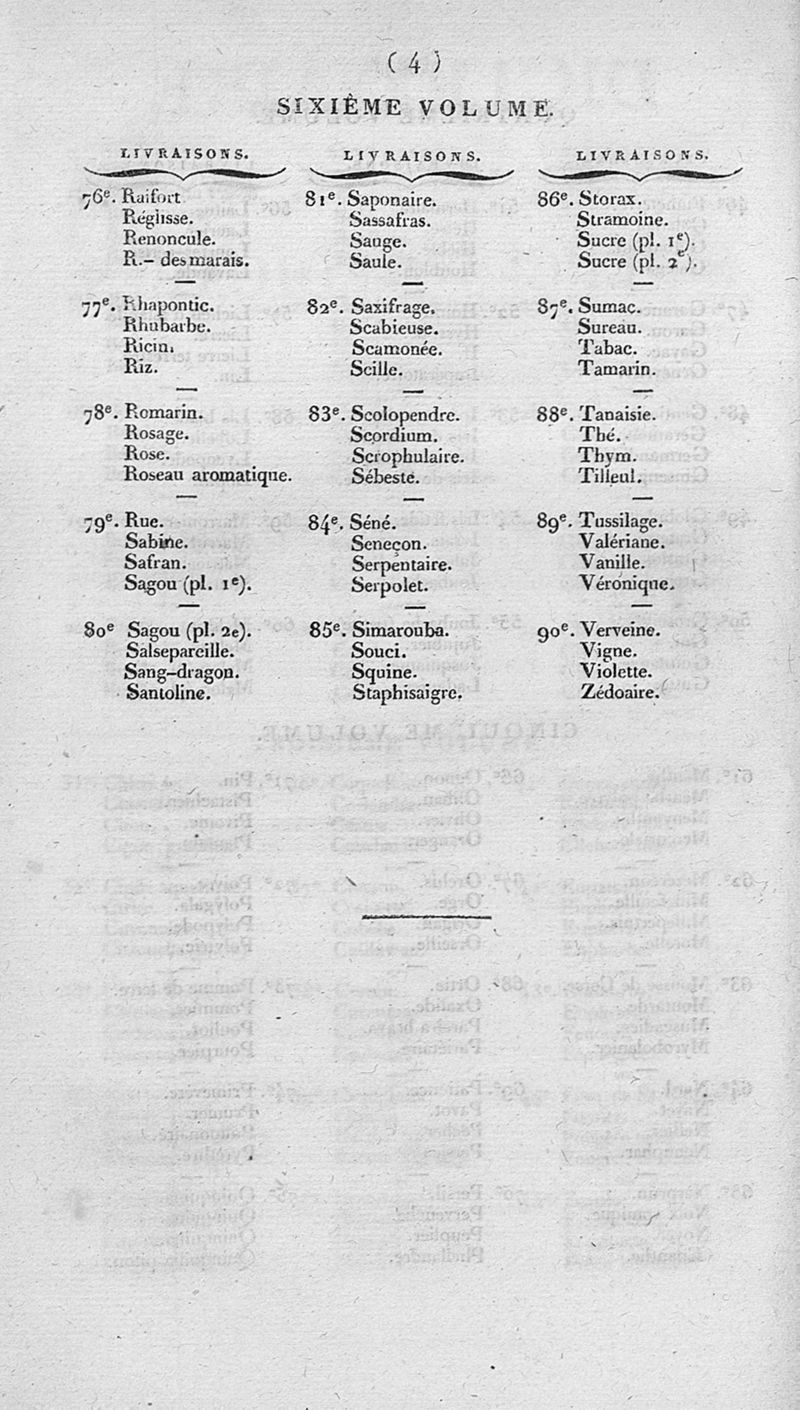 ( 4 )
SIXIÊME VOLUME.
LIVRAISONS.
76e. Raifort
Réglisse.
Renoncule.
R.– des marais.
77e. Rhapontic.
Rhubarbe.
Ricin.
Riz.
78e. Romarin.
Rosage.
Rose.
Roseau aromatique.
79e. Rue.
Sabine.
Safran.
Sagou (pl. 1e).
80e Sagou (pl. 2e).
Salsepareille.
Sang-dragon.
Santoline.
LIVRAISONS.
81e. Saponaire.
Sassafras.
Sauge.
Saule.
82e. Saxifrage.
Scabieuse.
Scamonée.
Scille.
83e. Scolopendre.
Scordium.
Scrophulaire.
Sébeste.
84e. Séné.
Seneçon.
Serpentaire.
Serpolet.
85e. Simarouba.
Souci.
Squine.
Staphisaigre.
LIVRAISONS.
86e. Storax.
Stramoine.
Sucre (pl. 1e).
Sucre (pl. 2e).
87e. Sumac.
Sureau.
Tabac.
Tamarin.
88e. Tanaisie.
Thé.
Thym.
Tilleul.
89e. Tussilage.
Valériane.
Vanille.
Véronique.
90e. Verveine.
Vigne.
Violette.
Zédoaire.